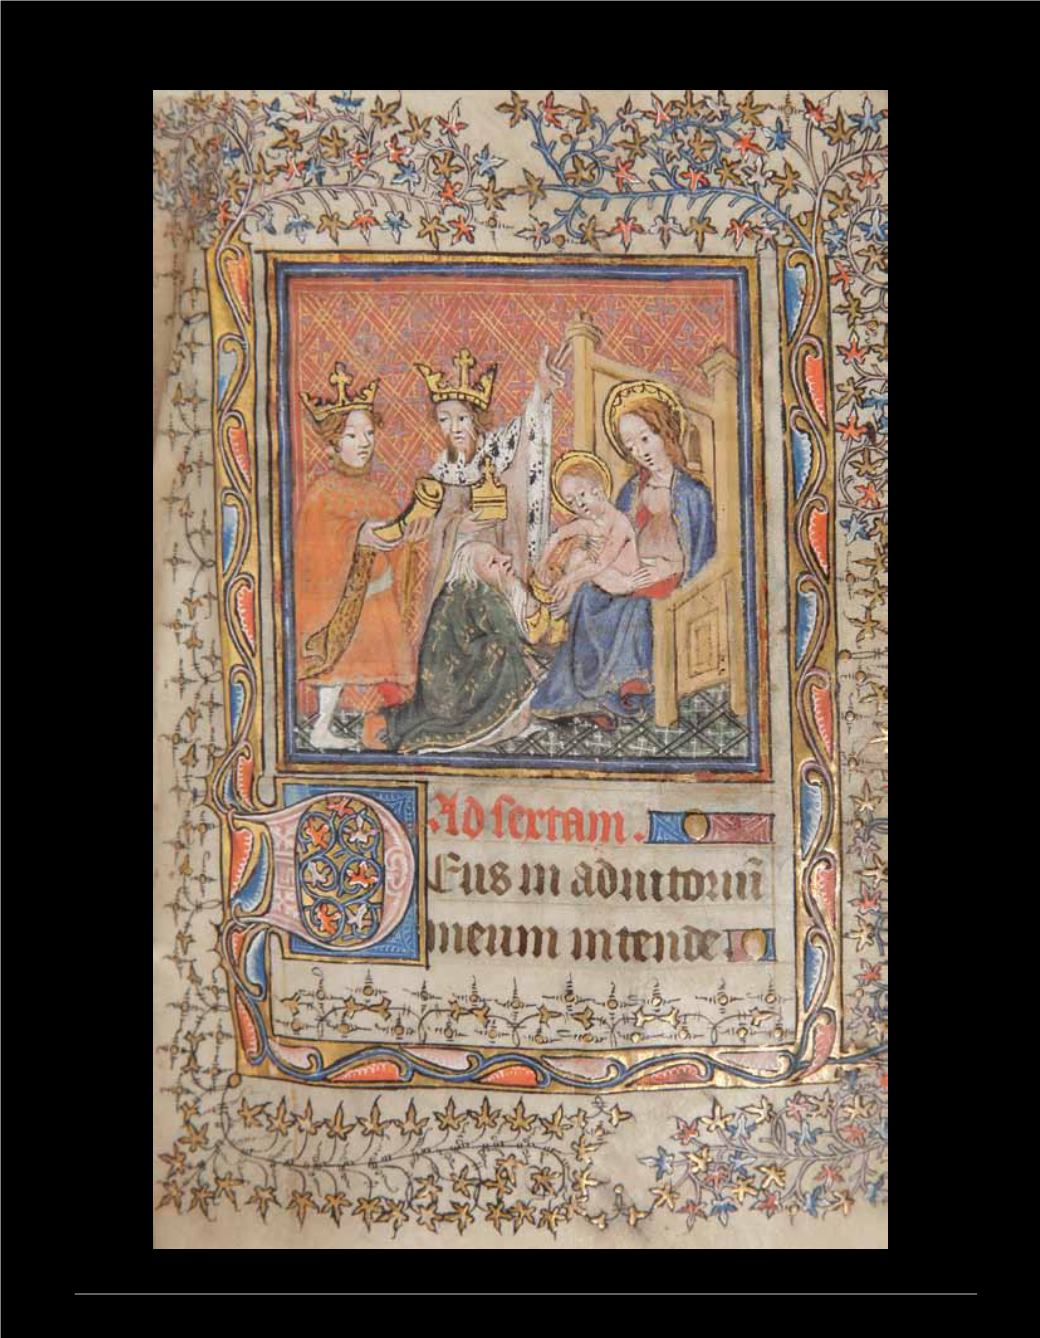 Ad sextam.
Deus in adiutoriū
meum intende